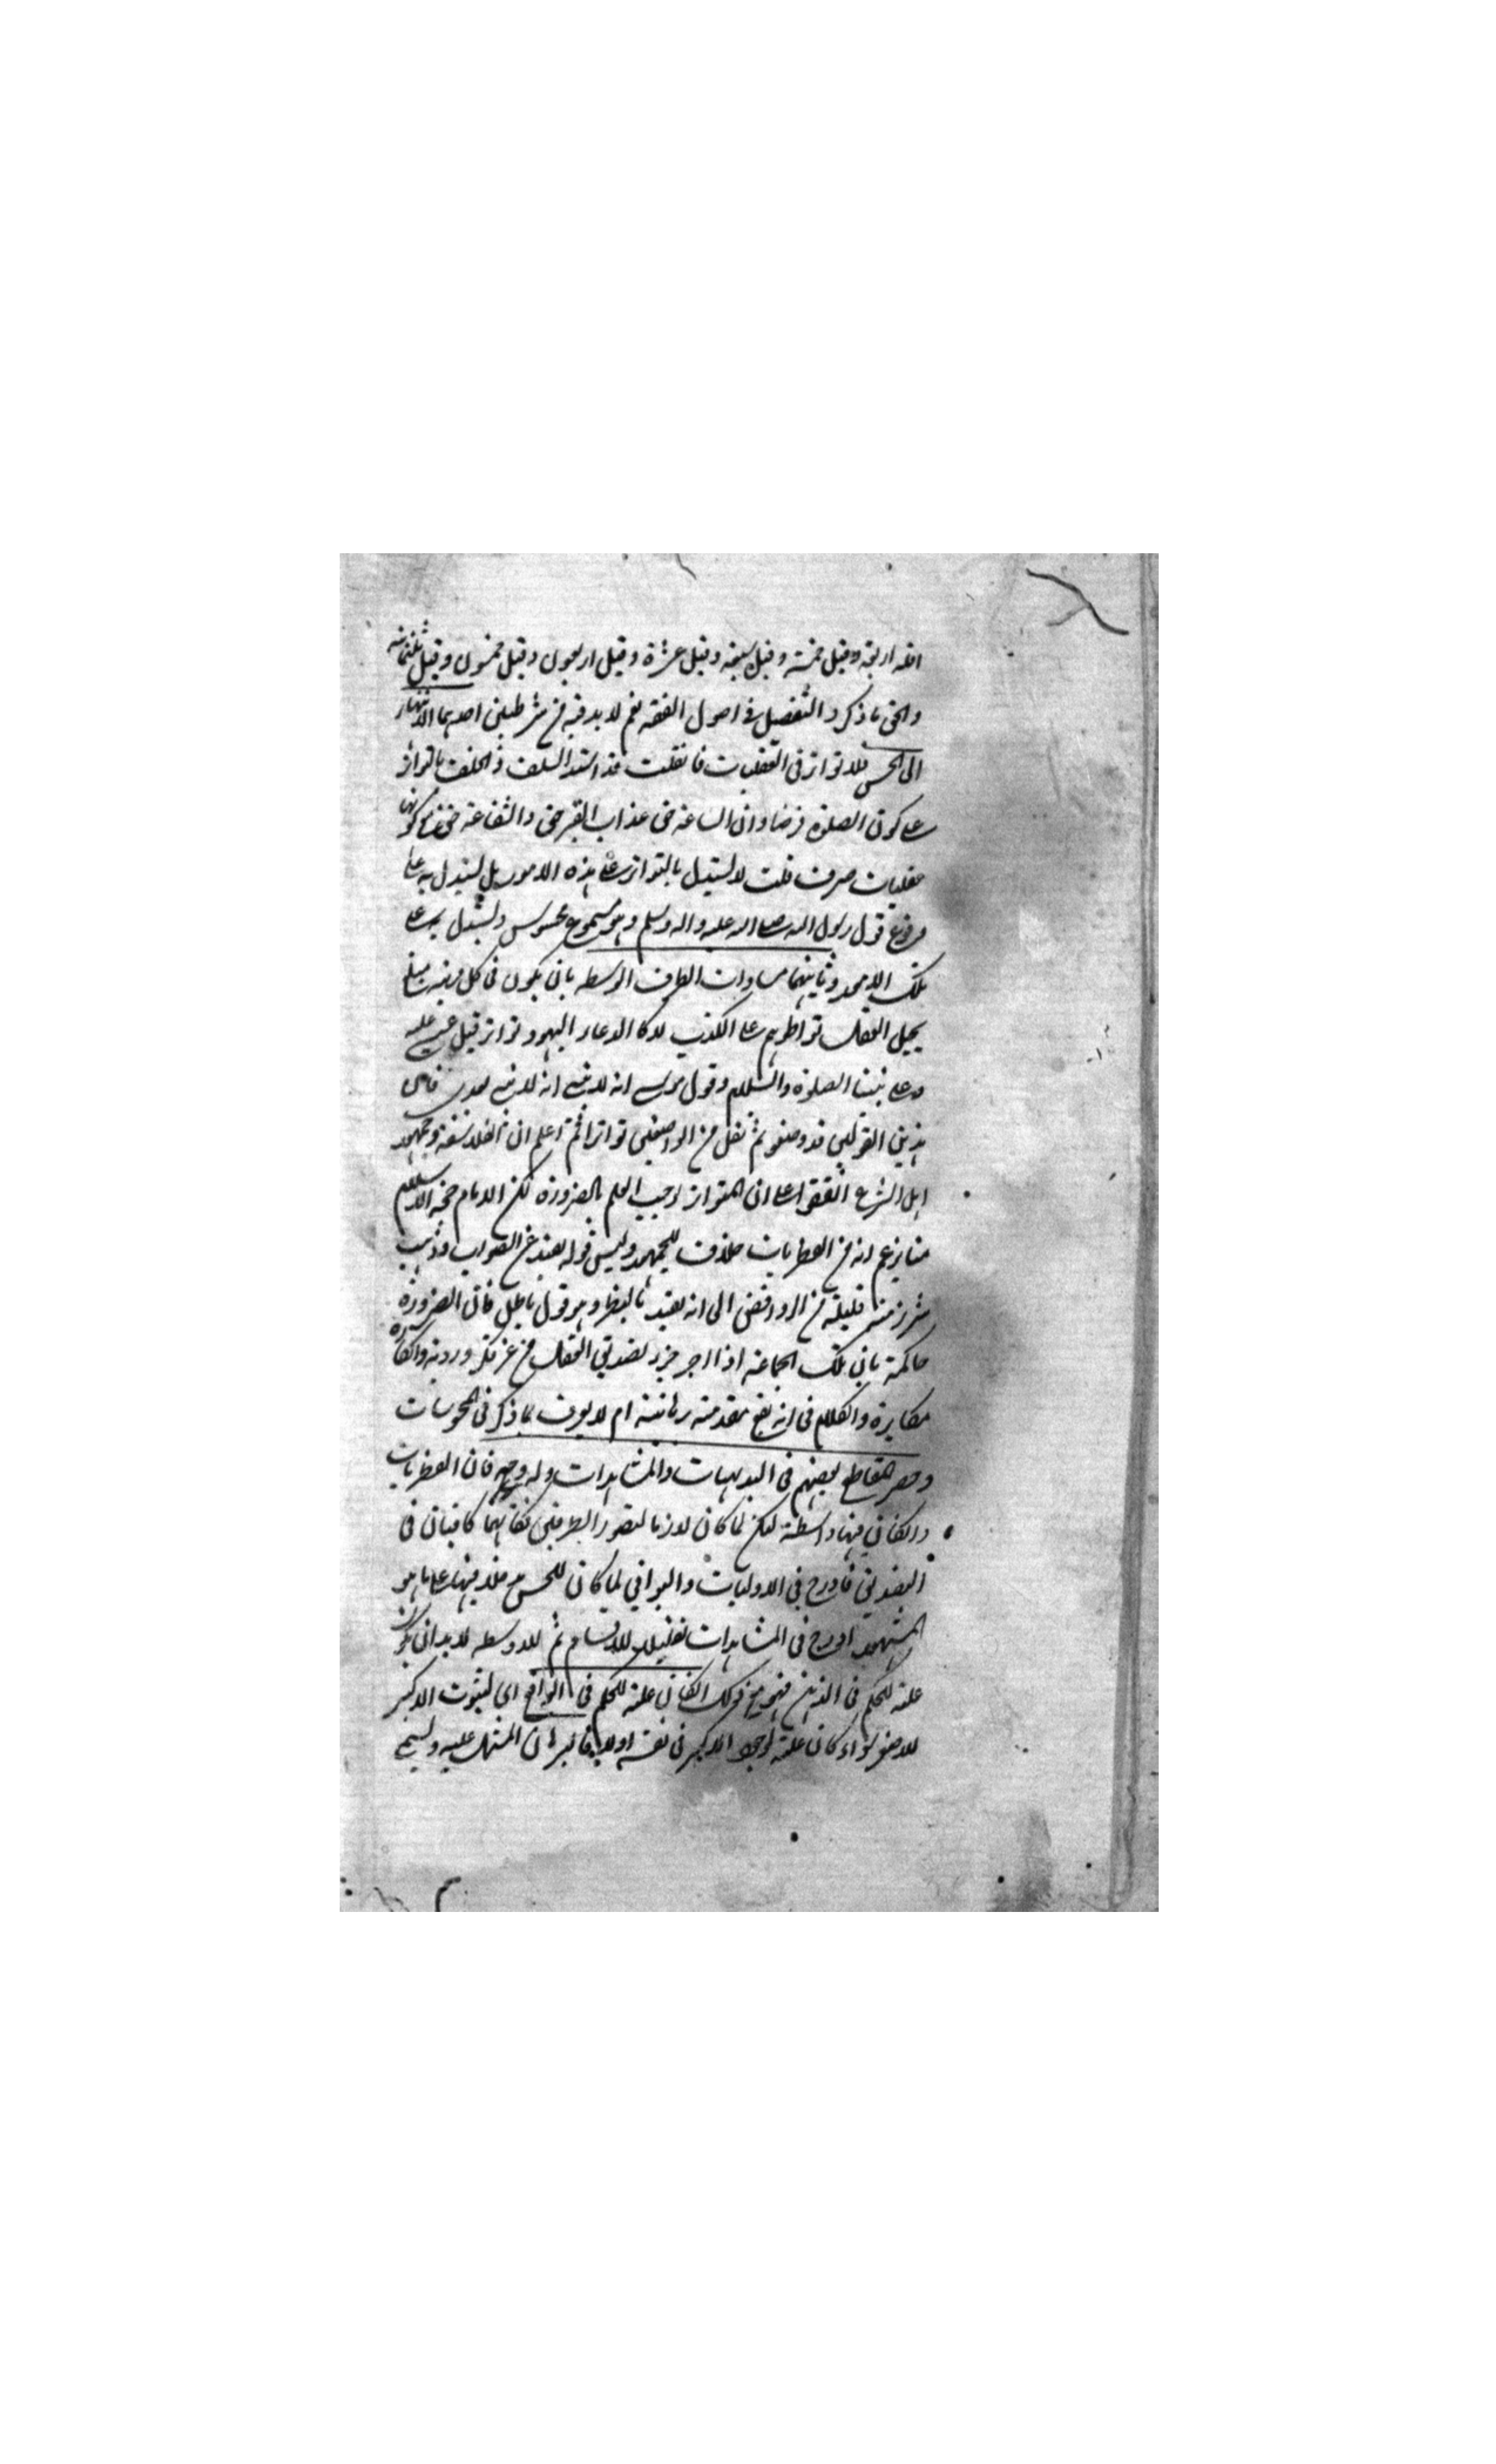 اقله اربعة وقيل خمسة وقيل سبعة وقيل عشرة وقيل اربعون وقيل خمسون وقيل ثلثمائة
والحق ما ذكر والتفصيل فى اصول الفقه نعم لا بد فيه من شرطين احدهما الانتهاء
الى الحس فلا تواتر فى العقليات فان قلت قد استدل السلف والخلف بالتواتر
على كون الصلوة فرضا وان الساعة حق عذاب القبر حق والشفاعة حق مع كونها
عقليات صرف قلت لا يستدل بالتواتر على هذه الامور بل يستدل به على
وقوع قول رسول الله صلى الله عليه واله وسلم وهو مسموع محسوس ويستدل به على
تلك الامور وثانيهما مساوات الطرف الوسط بان يكون فى كل مرتبة مبلغ
يحيل العقل تواطؤهم على الكذب لا كا الادعاء اليهود تواتر قتل عيسى عليه
وعلى نبينا الصلوة والسلام وقول موسى انه لا نبى انه لا نبى بعدى فان
هذين القولين قد وضعوا ثم نقل من الواضعين تواترا ثم اعلم ان الفلاسفة وجمهور
اهل الشرع اتفقوا على ان المتواتر يوجب العلم بالضرورة لكن الامام حجة الاسلام
منا يزعم انه من الفطريات خلاف للجمهور وليس قوله ببعيد عن الصواب وذهب
شرذمة قليلة من الروافض الى انه يفيد بالنظر وهو قول باطل فان الضرورة
حاكمة بان تلك الجماعة اذا اخبر بخبر يصدق العقل من غير فكر وروية وانكاره
مكابرة والكلام فى انه يقع مقدمة برهانية ام لا يعرف بما ذكر فى المحسوسات
وحصر المقاطع بعضهم فى البديهيات والمشاهدات وله وجه فان الفطريات
وان كان فيها واسطة لكن لما كان لازما لتصور الطرفين فكانهما كافيان فى
التصديق فادرج فى الاوليات والبواقى لما كان للحس مدخل فيها على ما هو
المشهور ادرج فى المشاهدات تقليلا للاقسام ثم الاوسط لا بد ان يكون
علة للحكم فى الذهن فهو مع ذلك ان كان علة للحكم فى الواقع اى لثبوت الاكبر
للاصغر سواء كان علة لوجود الاكبر فى نفسه او لا فالبرهان المشتمل عليه يسمى